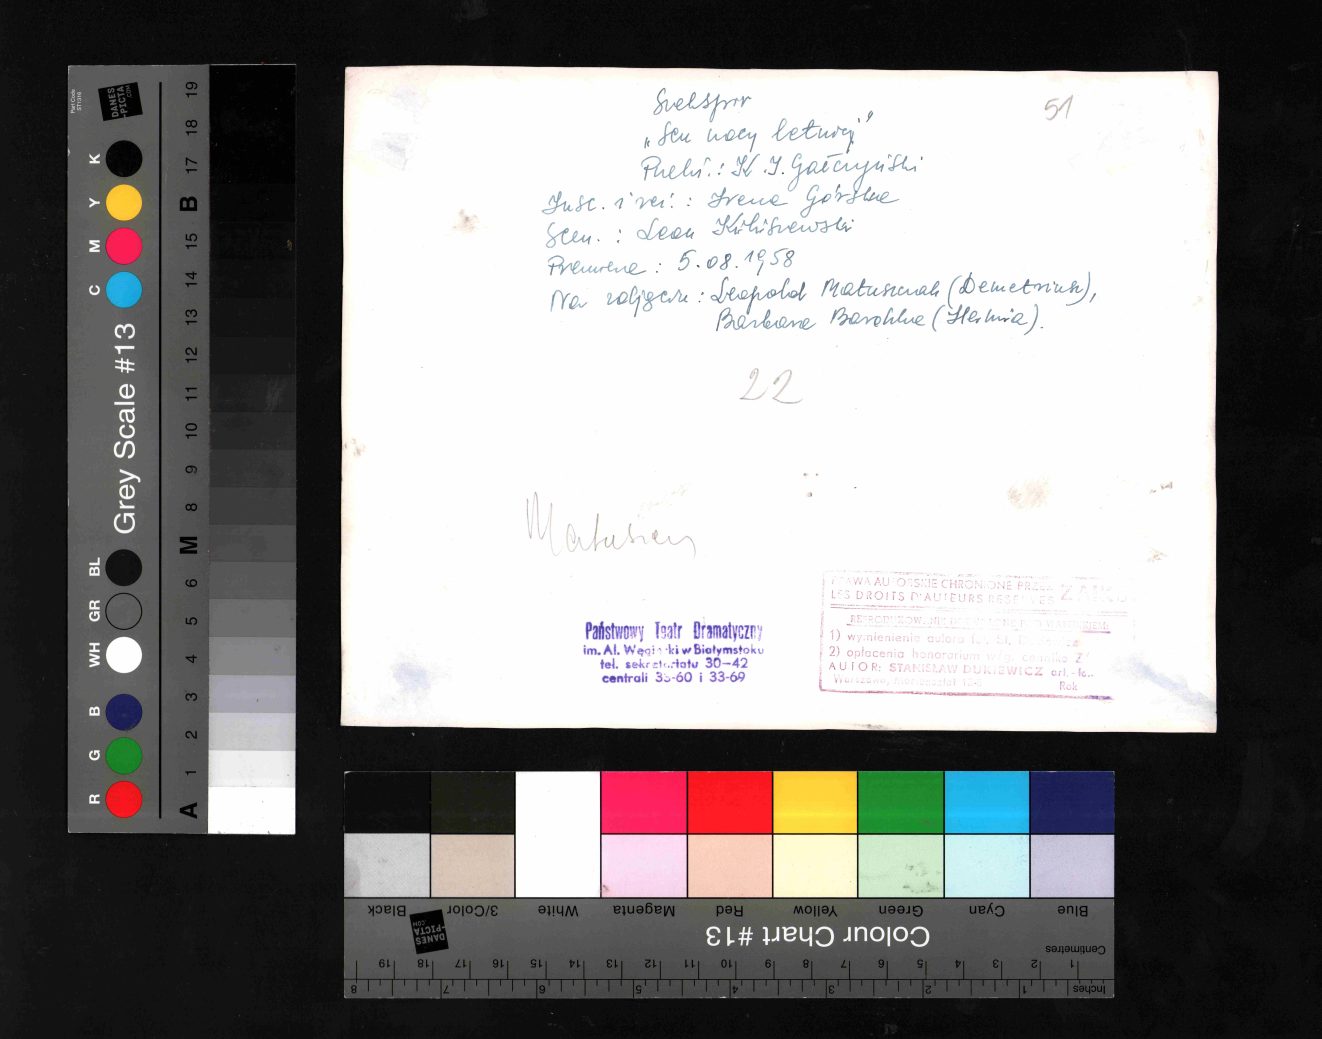 51
Szekspir
„Sen nocy letniej”
Przekł.: K. I. Gałczyński
Insc. i reż.: Irena Górska
Scen.: Leon Kiliszewski
Premiera: 5.08.1958
Na zdjęciu: Leopold Matuszczak (Demetriusz),
Barbara Barchlue (Hermia).
22
Państwowy Teatr Dramatyczny
im. Al. Węgierki w Białymstoku
tel. sekretariatu 30-42
centrali 33-60 i 33-69
PRAWA AUTORSKIE CHRONIONE PRZEZ ZAIKS
LES DROITS D'AUTEURS RESERVES
1) wymienienie autora fot. St. Dukiewicz
2) opłacenia honorarium wg. cennika
AUTOR: STANISŁAW DUKIEWICZ art.-fo..
Warszawa, Rok
Part Code
ST1316
DANES
-PICTA
.COM
Grey Scale #13
R G B WH GR BL C M Y K
A 1 2 3 4 5 6 M 8 9 10 11 12 13 14 15 B 17 18 19
Black 3/Color White Magenta Red Yellow Green Cyan Blue
DANES
-PICTA
.COM
Colour Chart #13
Centimetres
1 2 3 4 5 6 7 8 9 10 11 12 13 14 15 16 17 18 19
Inches 1 2 3 4 5 6 7 8